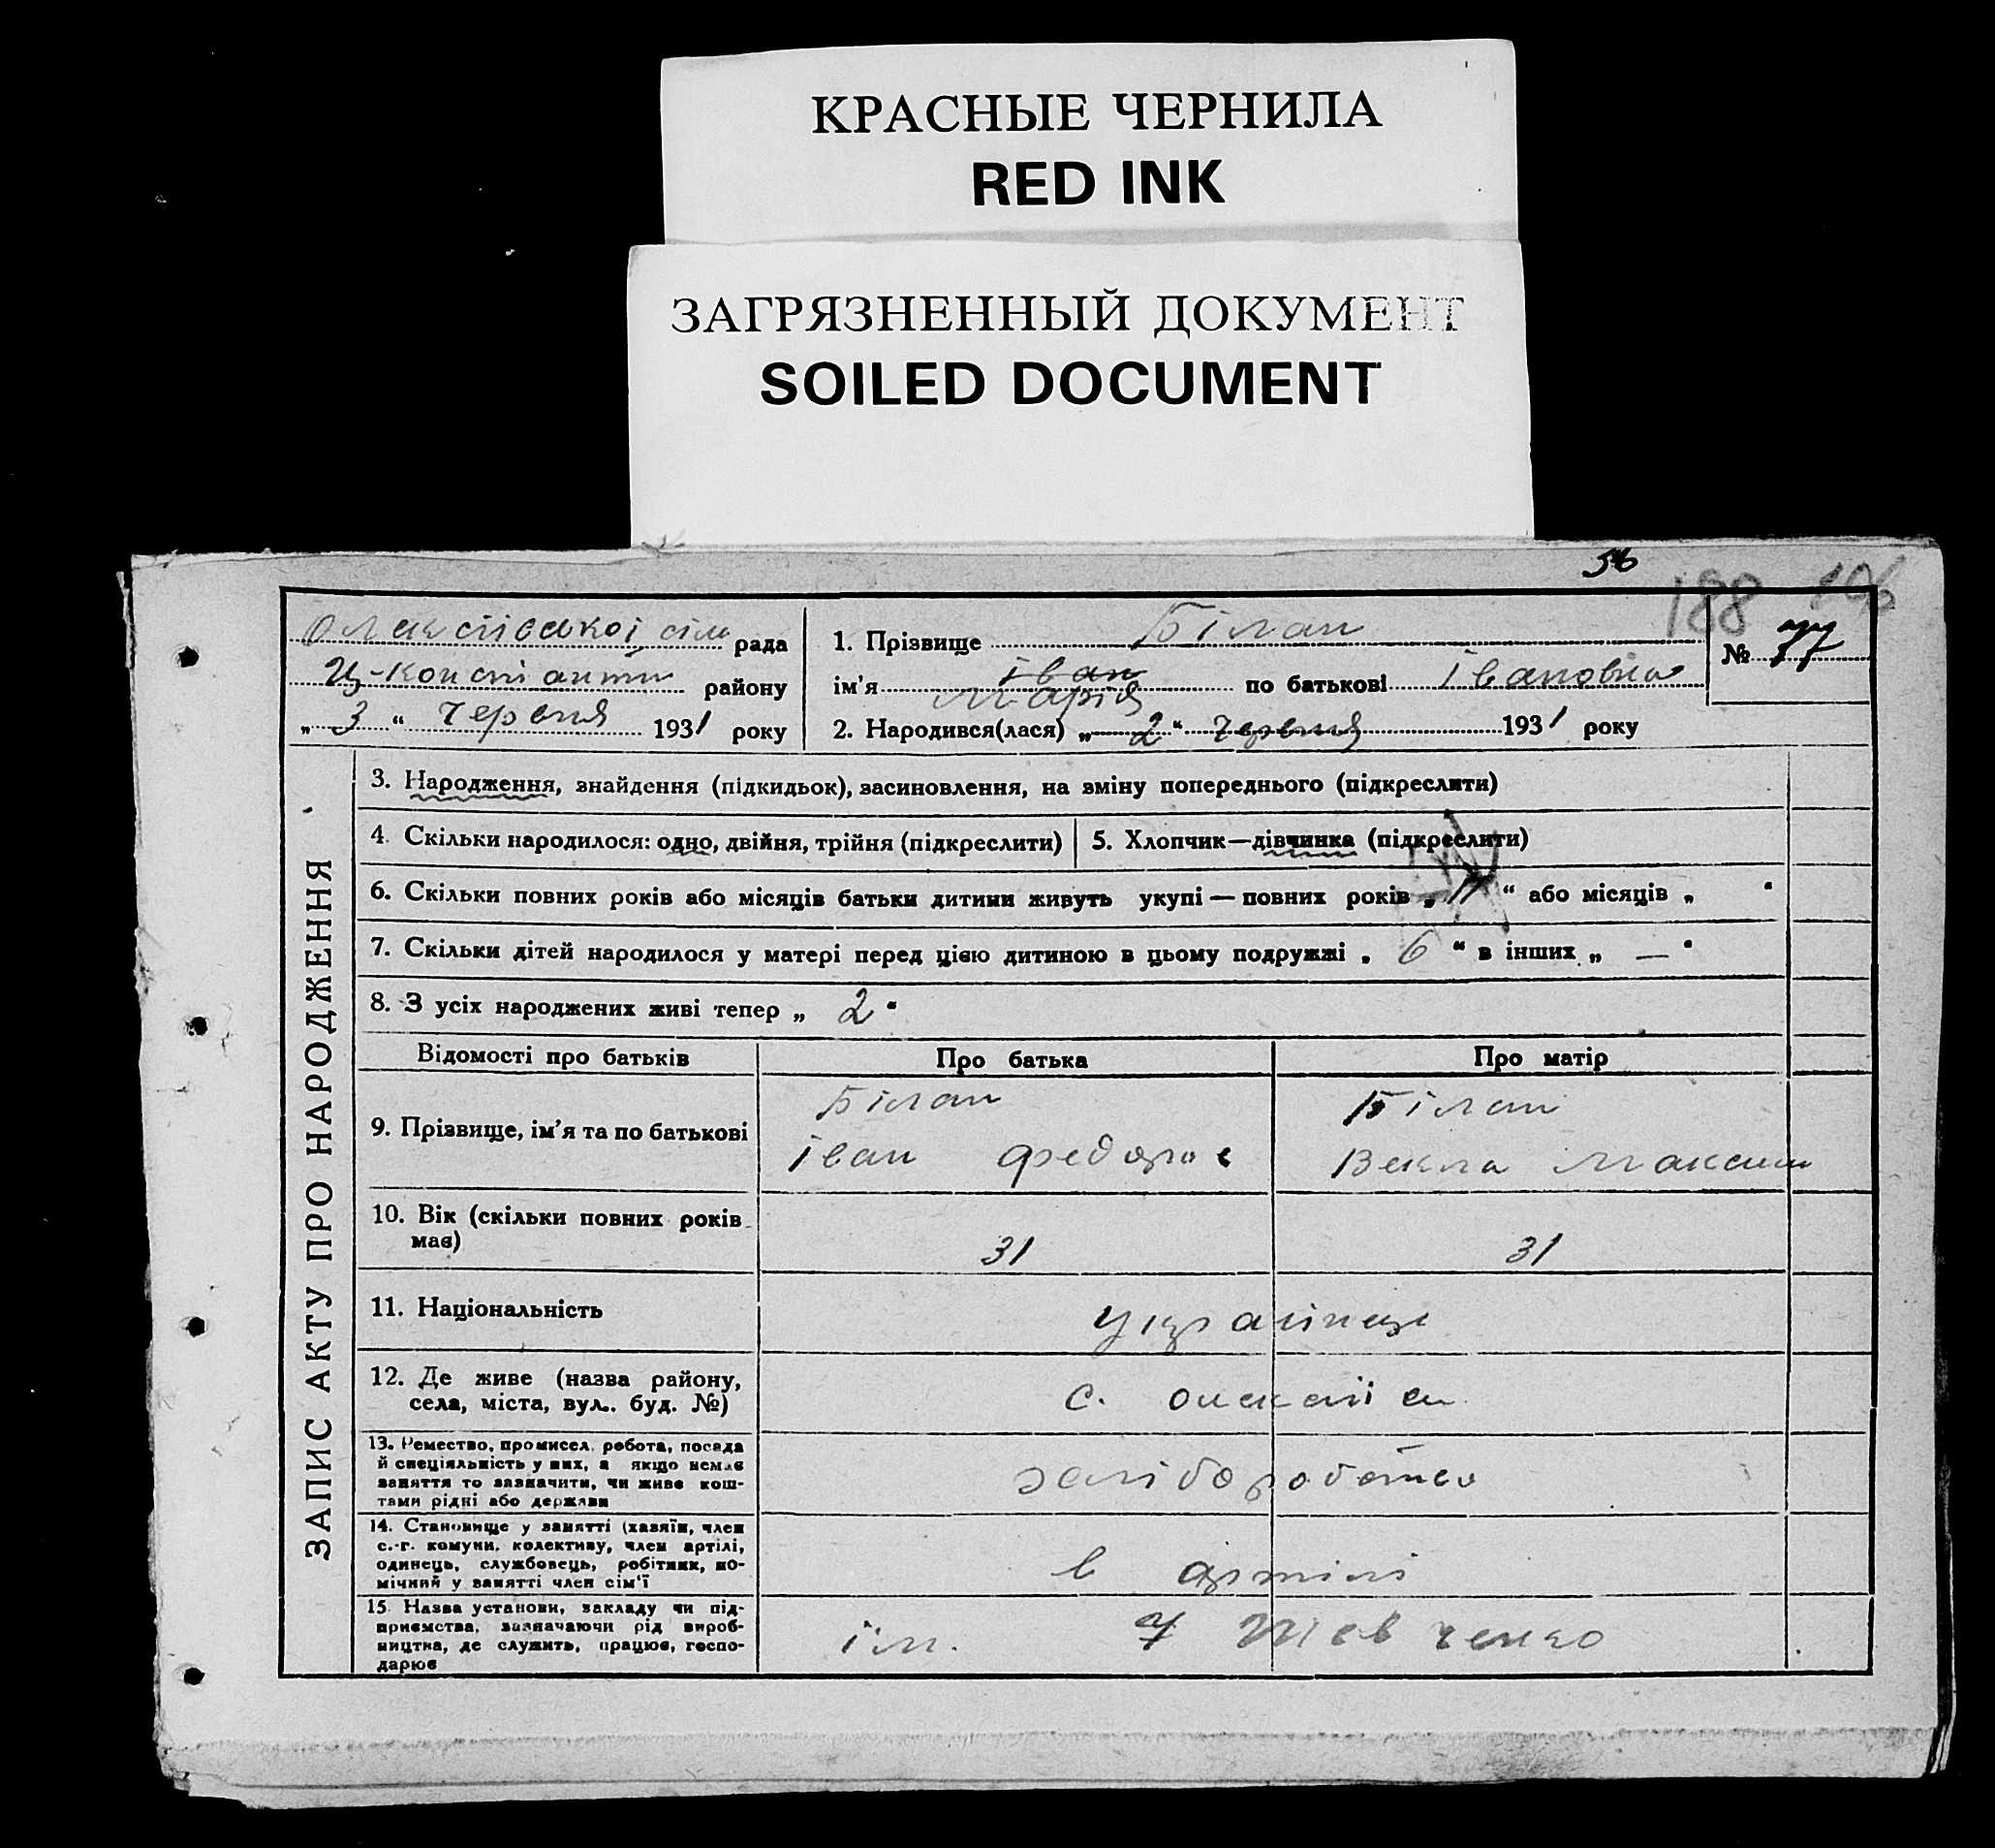 КРАСНЫЕ ЧЕРНИЛА
RED INK
ЗАГРЯЗНЕННЫЙ ДОКУМЕНТ
SOILED DOCUMENT
56
188
Олексіївської сіль рада
Ц-Констант району
„ 3 “ Червня 1931 року
1. Прізвище Білан
ім’я Іван Марія по батькові Івановна
№ 77
2. Народився(лася) „ 2 “ червня 1931 року
ЗАПИС АКТУ ПРО НАРОДЖЕННЯ
3. Народження, знайдення (підкидьок), засиновлення, на зміну попереднього (підкреслити)
4. Скільки народилося: одно, двійня, трійня (підкреслити)
5. Хлопчик—дівчинка (підкреслити)
6. Скільки повних років або місяців батьки дитини живуть укупі — повних років „ 11 “ або місяців „ “
7. Скільки дітей народилося у матері перед цією дитиною в цьому подружжі „ 6 “ в інших „ — “
8. З усіх народжених живі тепер „ 2 “
Відомості про батьків
Про батька
Про матір
9. Прізвище, ім’я та по батькові
Білан
Іван Федоров
Білан
Векла Максим
10. Вік (скільки повних років має)
31
31
11. Національність
Українці
12. Де живе (назва району, села, міста, вул. буд. №)
с. Олексіїв
13. Ремество, промисел, робота, посада й спеціяльність у них, а якщо немає заняття то зазначити, чи живе коштами рідні або держави
хліборобство
14. Становище у занятті (хазяїн, член с.-г. комуни, колективу, член артілі, одинець, службовець, робітник, помічний у занятті член сім’ї
в артілі
15. Назва установи, закладу чи підприємства, зазначаючи рід виробництва, де служить, працює, господарює
ім. Шевченко